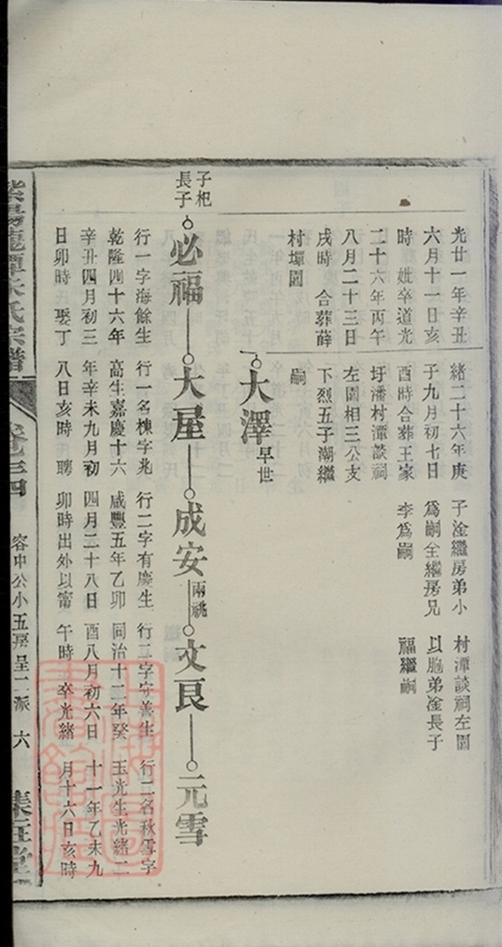 光廿一年辛丑
六月十一日亥
時 妣卒道光
二十六年丙午
八月二十三日
戌時 合葬薛
村墰園
緒二十六年庚
子九月初七日
酉時合葬王家
圩潘村潭談祠
左園相三公支
下烈五子潮繼
嗣
子淦繼房弟小
為嗣全繼房兄
李為嗣
村潭談祠左園
以胞弟淦長子
福繼嗣
大澤早世
子杞
長子
必福
大屋
成安兩祧
文良
元雪
行一字海餘生
乾隆四十六年
辛丑四月初三
日卯時 娶丁
行一名棟字兆
高生嘉慶十六
年辛未九月初
八日亥時 聘
行二字有慶生
咸豐五年乙卯
四月二十八日
卯時出外以甯
行二字守善生
同治十二年癸
酉八月初六日
午時 卒光緒
行二名秋雪字
玉光生光緒二
十一年乙未九
月十六日亥時
宗譜
卷三四
容中公小五房呈二派 六